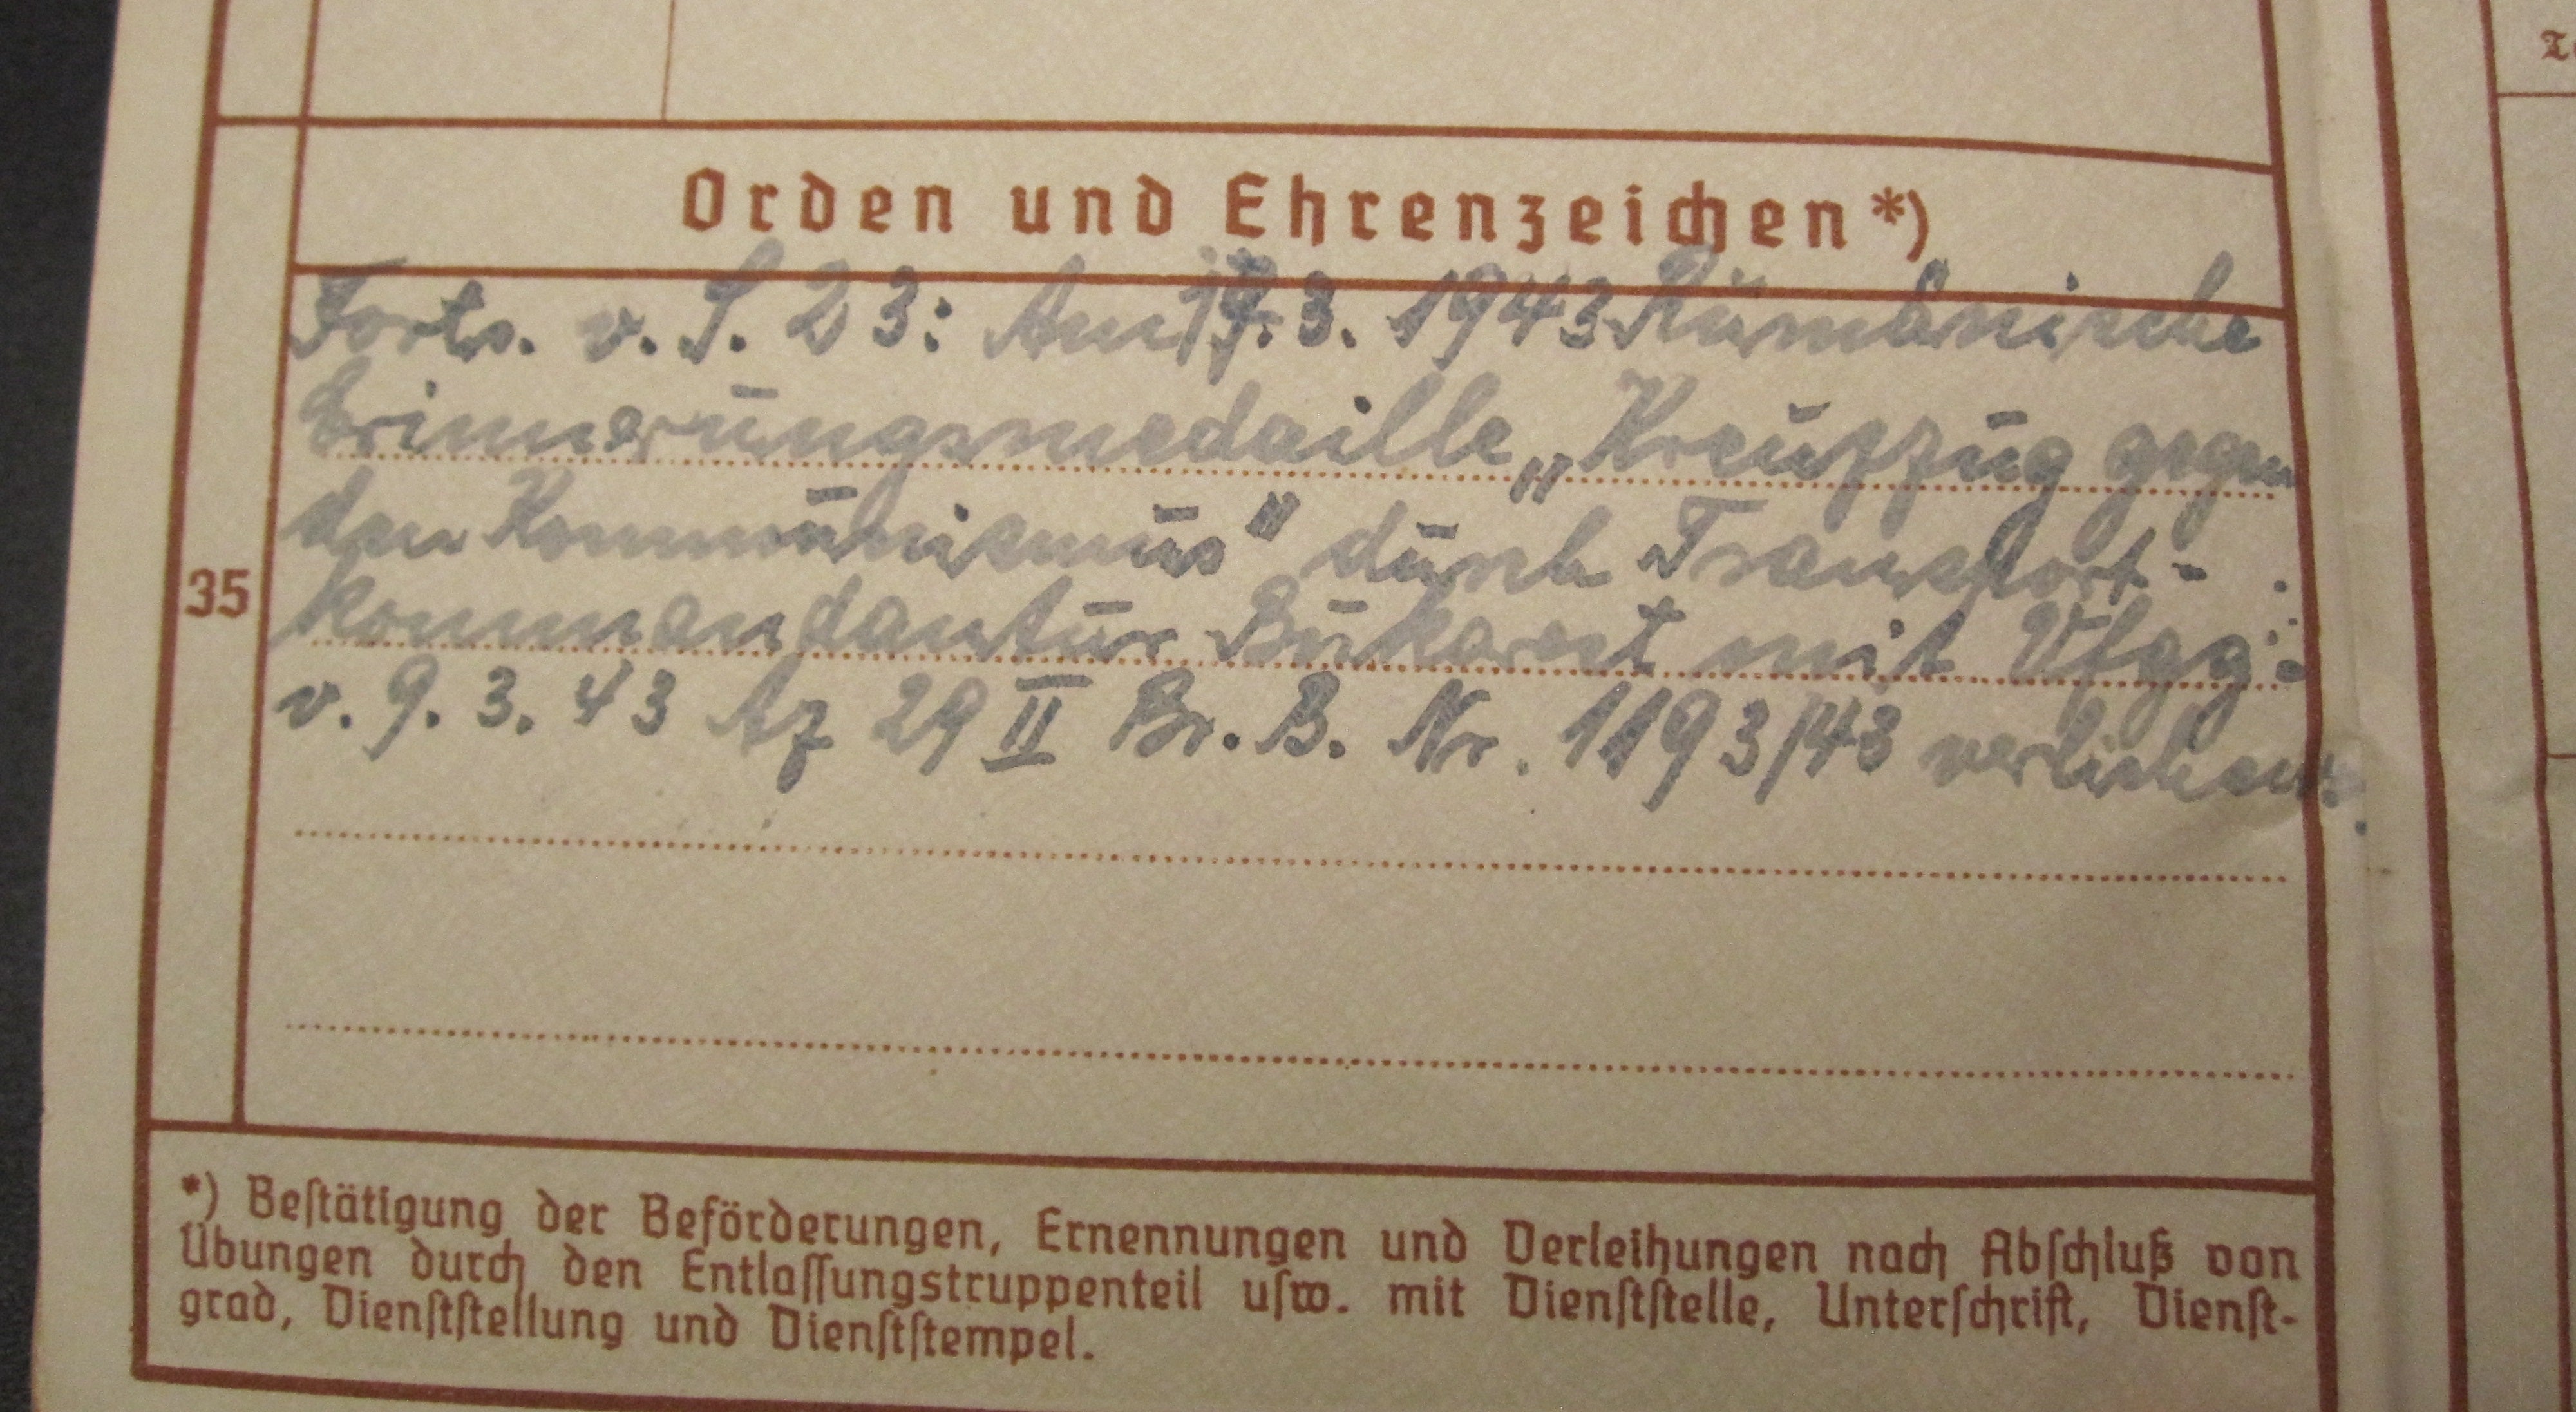 Orden und Ehrenzeichen*)
Forts. v. S. 23: Am 19.3. 1943 Rumänische
Erinnerungsmedaille „Kreuzzug gegen
den Kommunismus" durch Transport-
35
kommandantur Bukarest mit Vfgg.
v. 9. 3. 43 Az 29 II Br. B. Nr. 1193/43 verliehen.
*) Bestätigung der Beförderungen, Ernennungen und Verleihungen nach Abschluß von
Übungen durch den Entlassungstruppenteil usw. mit Dienststelle, Unterschrift, Dienst-
grad, Dienststellung und Dienststempel.